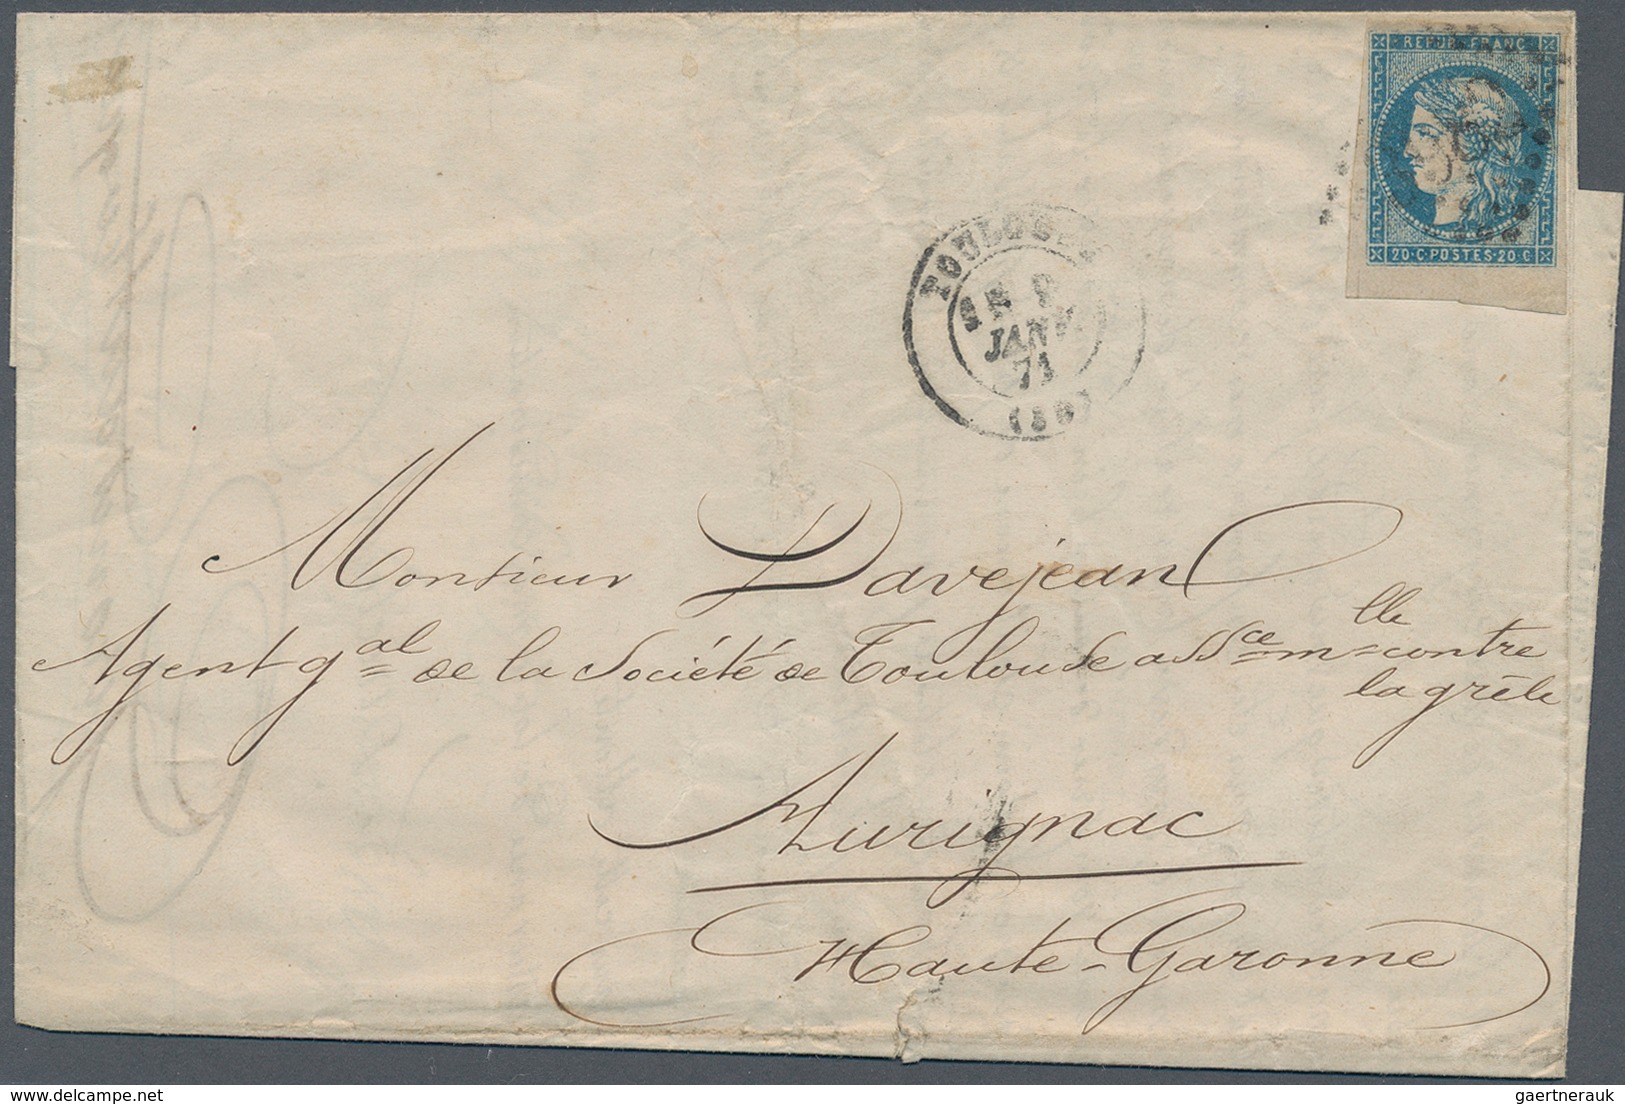 REPUB. FRANC.
20·C·POSTES·20·C
TOULOUSE
JANV.
71
Monsieur Davejean
Agent gal de la Société de Toulouse assce mlle contre
la grêle
Aurignac
Haute-Garonne
gaertnerauk